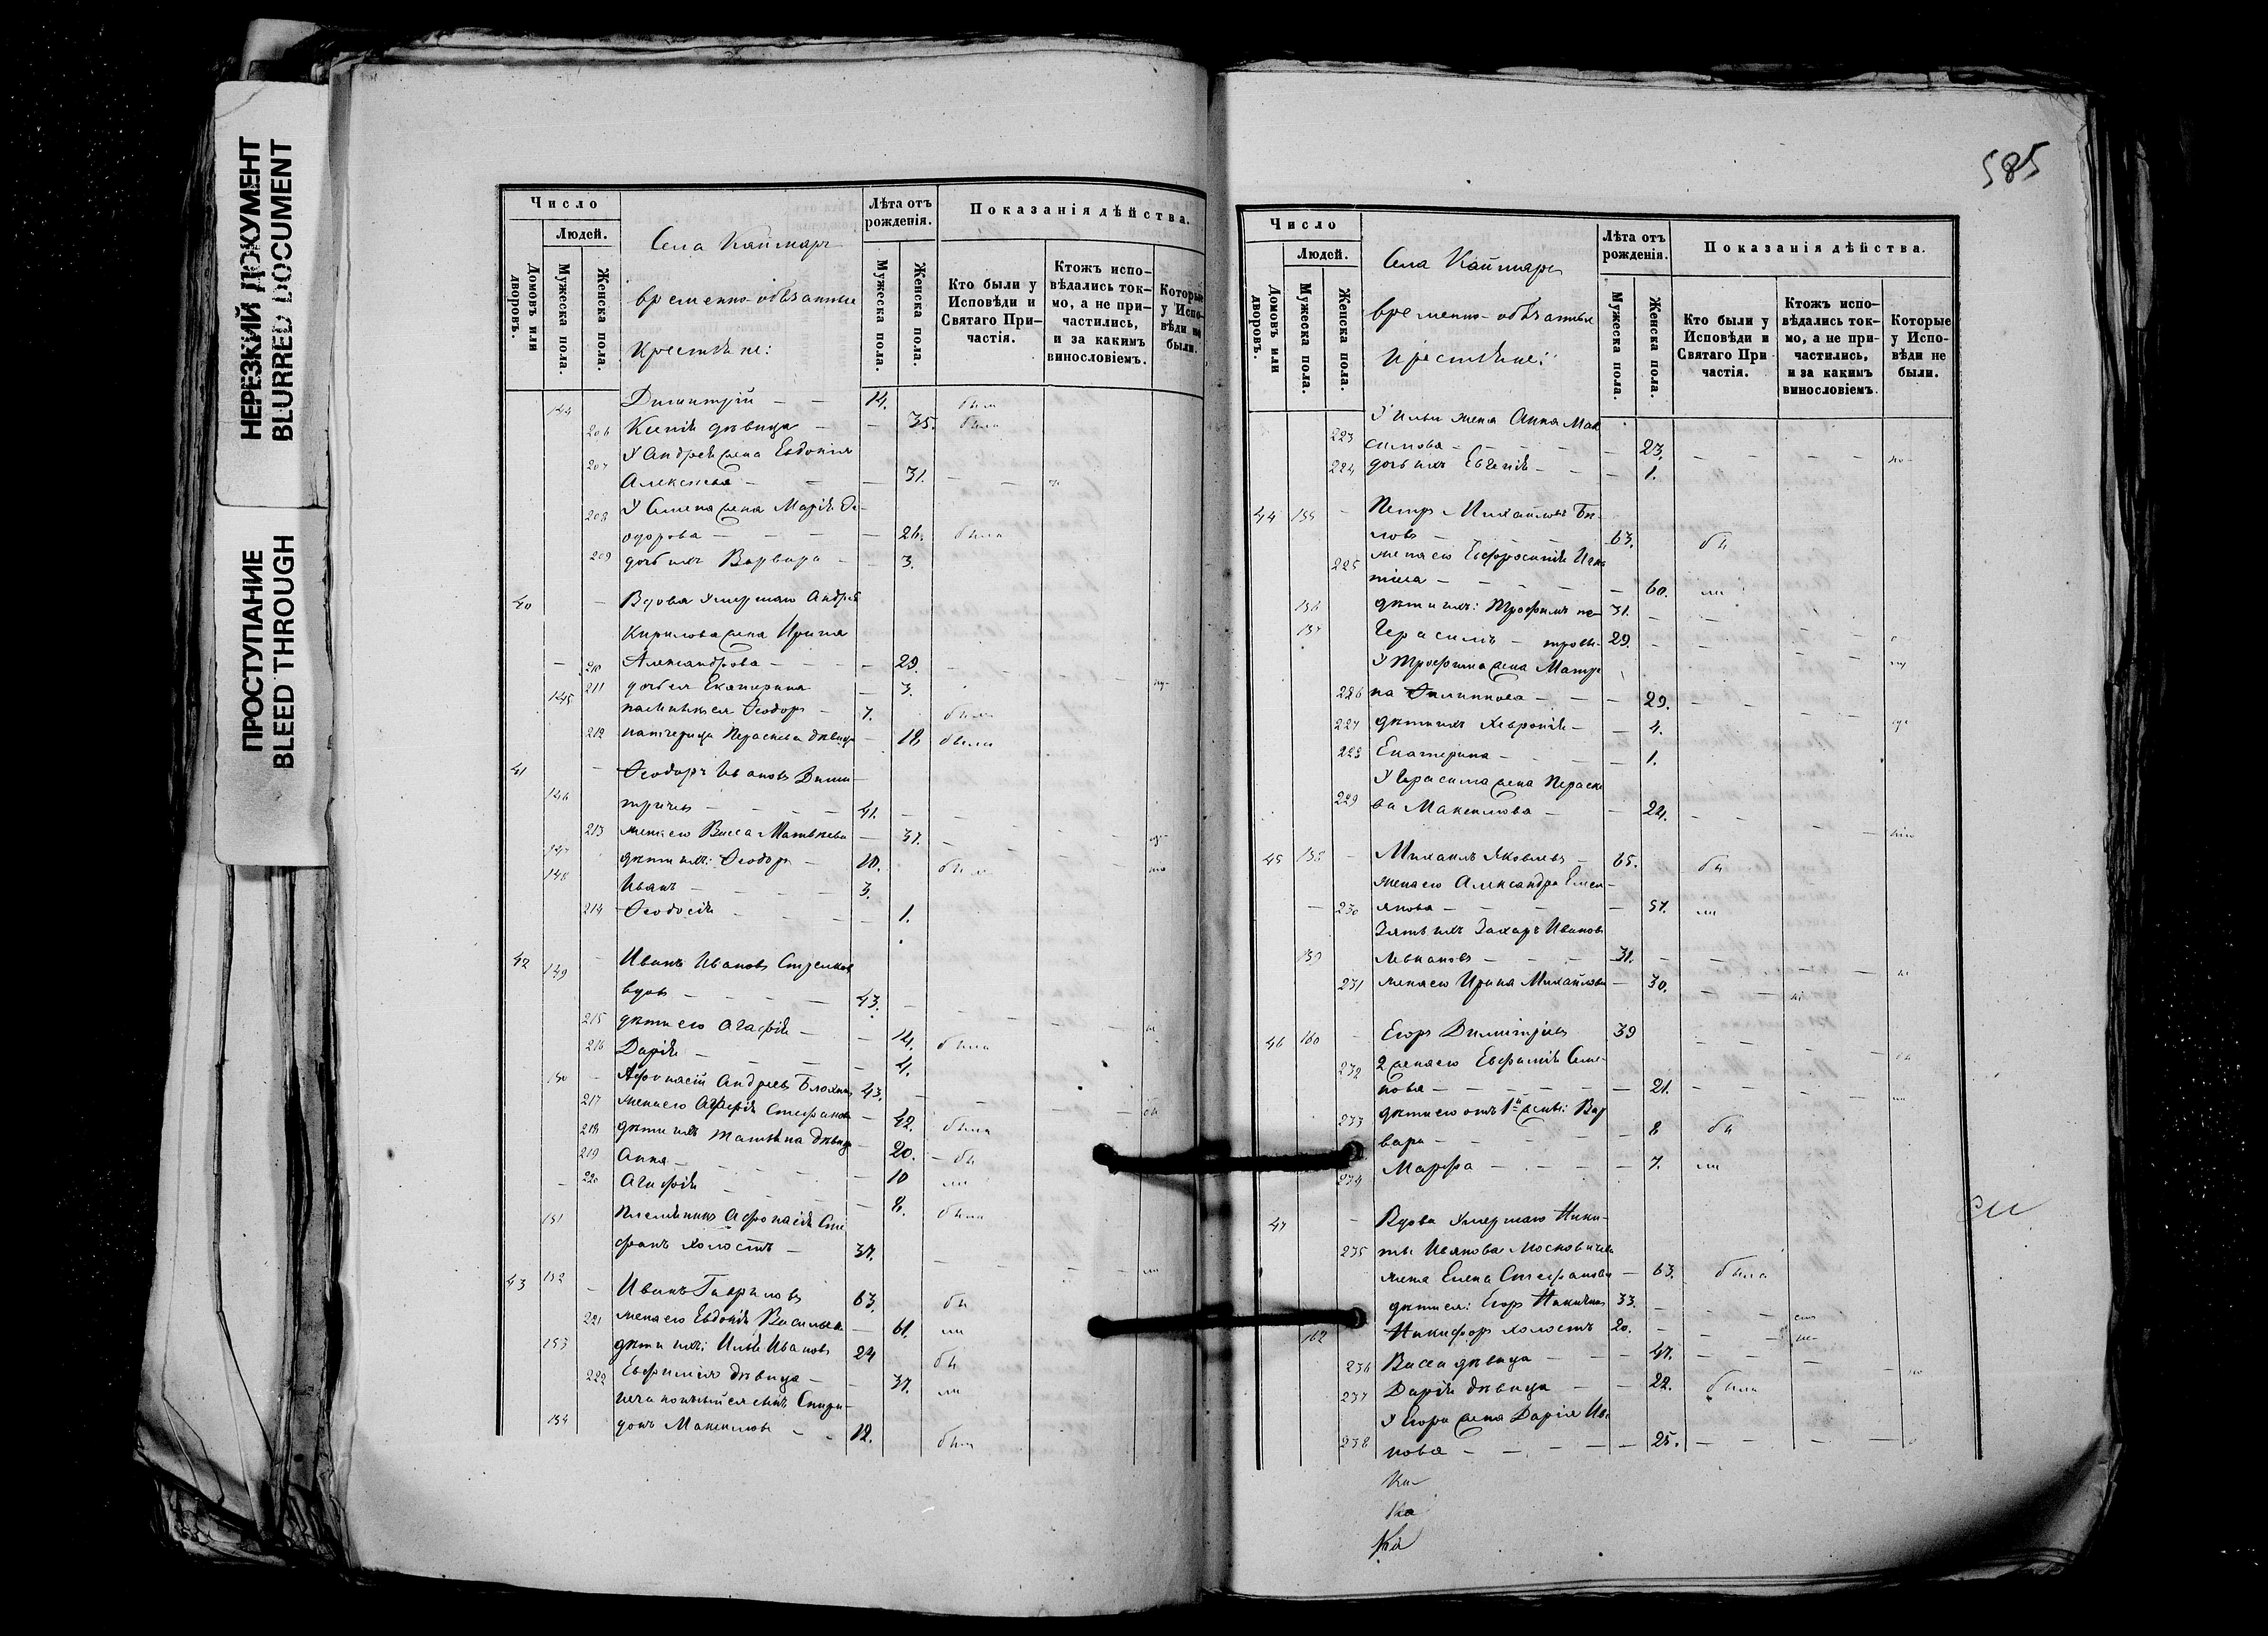 НЕРЕЗКИЙ ДОКУМЕНТ
BLURRED DOCUMENT
ПРОСТУПАНИЕ
BLEED THROUGH
Число
Людей.
Домовъ или дворовъ.
Мужеска пола.
Женска пола.
Села Каймаръ
временно-обязанные
крестьяне:
Лѣта отъ рожденія.
Мужеска пола.
Женска пола.
Показанія дѣйства.
Кто были у Исповѣди и Святаго При-частія.
Ктожъ испо-вѣдались ток-мо, а не при-частились, и за какимъ винословіемъ.
Которые у Испо-вѣди не были.
144 Димитрій — — 14. былъ
206 Ксенія дѣвица — — 35. была
У Андрея жена Евдокія
207 Алексѣева — — — 31. — —
208 У Семена жена Марія Ѳе-
одорова — — — — 26. была
209 дочь ихъ Варвара — — 3.
40 — Вдова умершаго Андрея
Кирилова жена Ирина
— 210 Александрова — — — — 29. — —
211 дочь ея Екатерина — 3.
145 Ѳеодоръ — 7.
212 падчерица Параскева дѣвица — 18 была
41 — Ѳеодоръ Ивановъ Дими-
146 тріевъ — — — 41. — —
213 жена его Васса Матвѣева — 37. —
147 дѣти ихъ: Ѳеодоръ — 10. былъ
148 Иванъ — — — — 3.
214 Ѳеодосія — — — 1.
42 149 — Иванъ Ивановъ Стрелковъ
вдовъ — — — — 43. —
215 дѣти его Агафія — — 14. была
216 Дарія — — — — 4.
150 — Афонасій Андреевъ Блохинъ 43. —
217 жена его Агафія Стефанова — 42. была
218 дѣти ихъ Татьяна дѣвица — 20. — бы
219 Анна — — — — 10 ли
— 220 Агафія — — — 8. была
151 Племянникъ Афонасія Сте
фанъ холостъ — 37.
43 152 — Иванъ Гавриловъ 63. бы
221 жена его Евдокія Васильева — 61. ли
153 дѣти ихъ: Илья Ивановъ 24 бы
222 Евфимія дѣвица — — 37. ли
незаконный ея сынъ Спири-
154 донъ Максимовъ — — 12. былъ
585
Число
Людей.
Домовъ или дворовъ.
Мужеска пола.
Женска пола.
Села Каймаръ
временно-обязанные
крестьяне:
Лѣта отъ рожденія.
Мужеска пола.
Женска пола.
Показанія дѣйства.
Кто были у Исповѣди и Святаго При частія.
Ктожъ испо-вѣдались ток-мо, а не при-частились, и за какимъ винословіемъ.
Которые у Испо-вѣди не были.
У Ильи жена Анна Мак
223 симова — — — — 23. — — — —
224 дочь ихъ Евгенія — — — 1.
44 155 — Петръ Михайловъ Бѣ-
ловъ — — — — 63. бы
225 жена его Евфросинія Игна
тіева — — — — 60. ли
156 дѣти ихъ: Трофимъ Пе- 31. — —
157 Герасимъ — тровы. 29. — —
У Трофима жена Матре
226 на Филиппова — — — 29. — —
227 дѣти ихъ Хевронія — — 4.
228 Екатерина — — — 1.
У Герасима жена Параске
229 ва Максимова — — 24. — — — —
45 158 — Михаилъ Яковлевъ — 65. бы
жена его Александра Емел-
— 230 янова — — — — 57. ли
Зять ихъ Захаръ Ивановъ
159 Левкановъ — — — 31. — — — —
231 жена его Ирина Михайлова — 30. — —
46 160 — Егоръ Димитріевъ 39 — — — —
232 2 жена его Евфимія Семе-
нова — — — — — 21. — — —
233 дѣти его отъ 1й жены: Вар
вара — — — — 8 бы
234 Марфа — — — — 7. ли
47 — Вдова умершаго Ники-
235 ты Иванова Московичева
жена Елена Стефанова — 63. была
дѣти ея: Егоръ Никитинъ 33. — — —
162 Никифоръ холостъ 20. — — —
236 Васса дѣвица — — — 47. — — —
237 Дарія дѣвица — — 22. была
У Егора жена Дарія Ива
238 нова — — — — — 25. — — — —
Ка
Ка
Ка